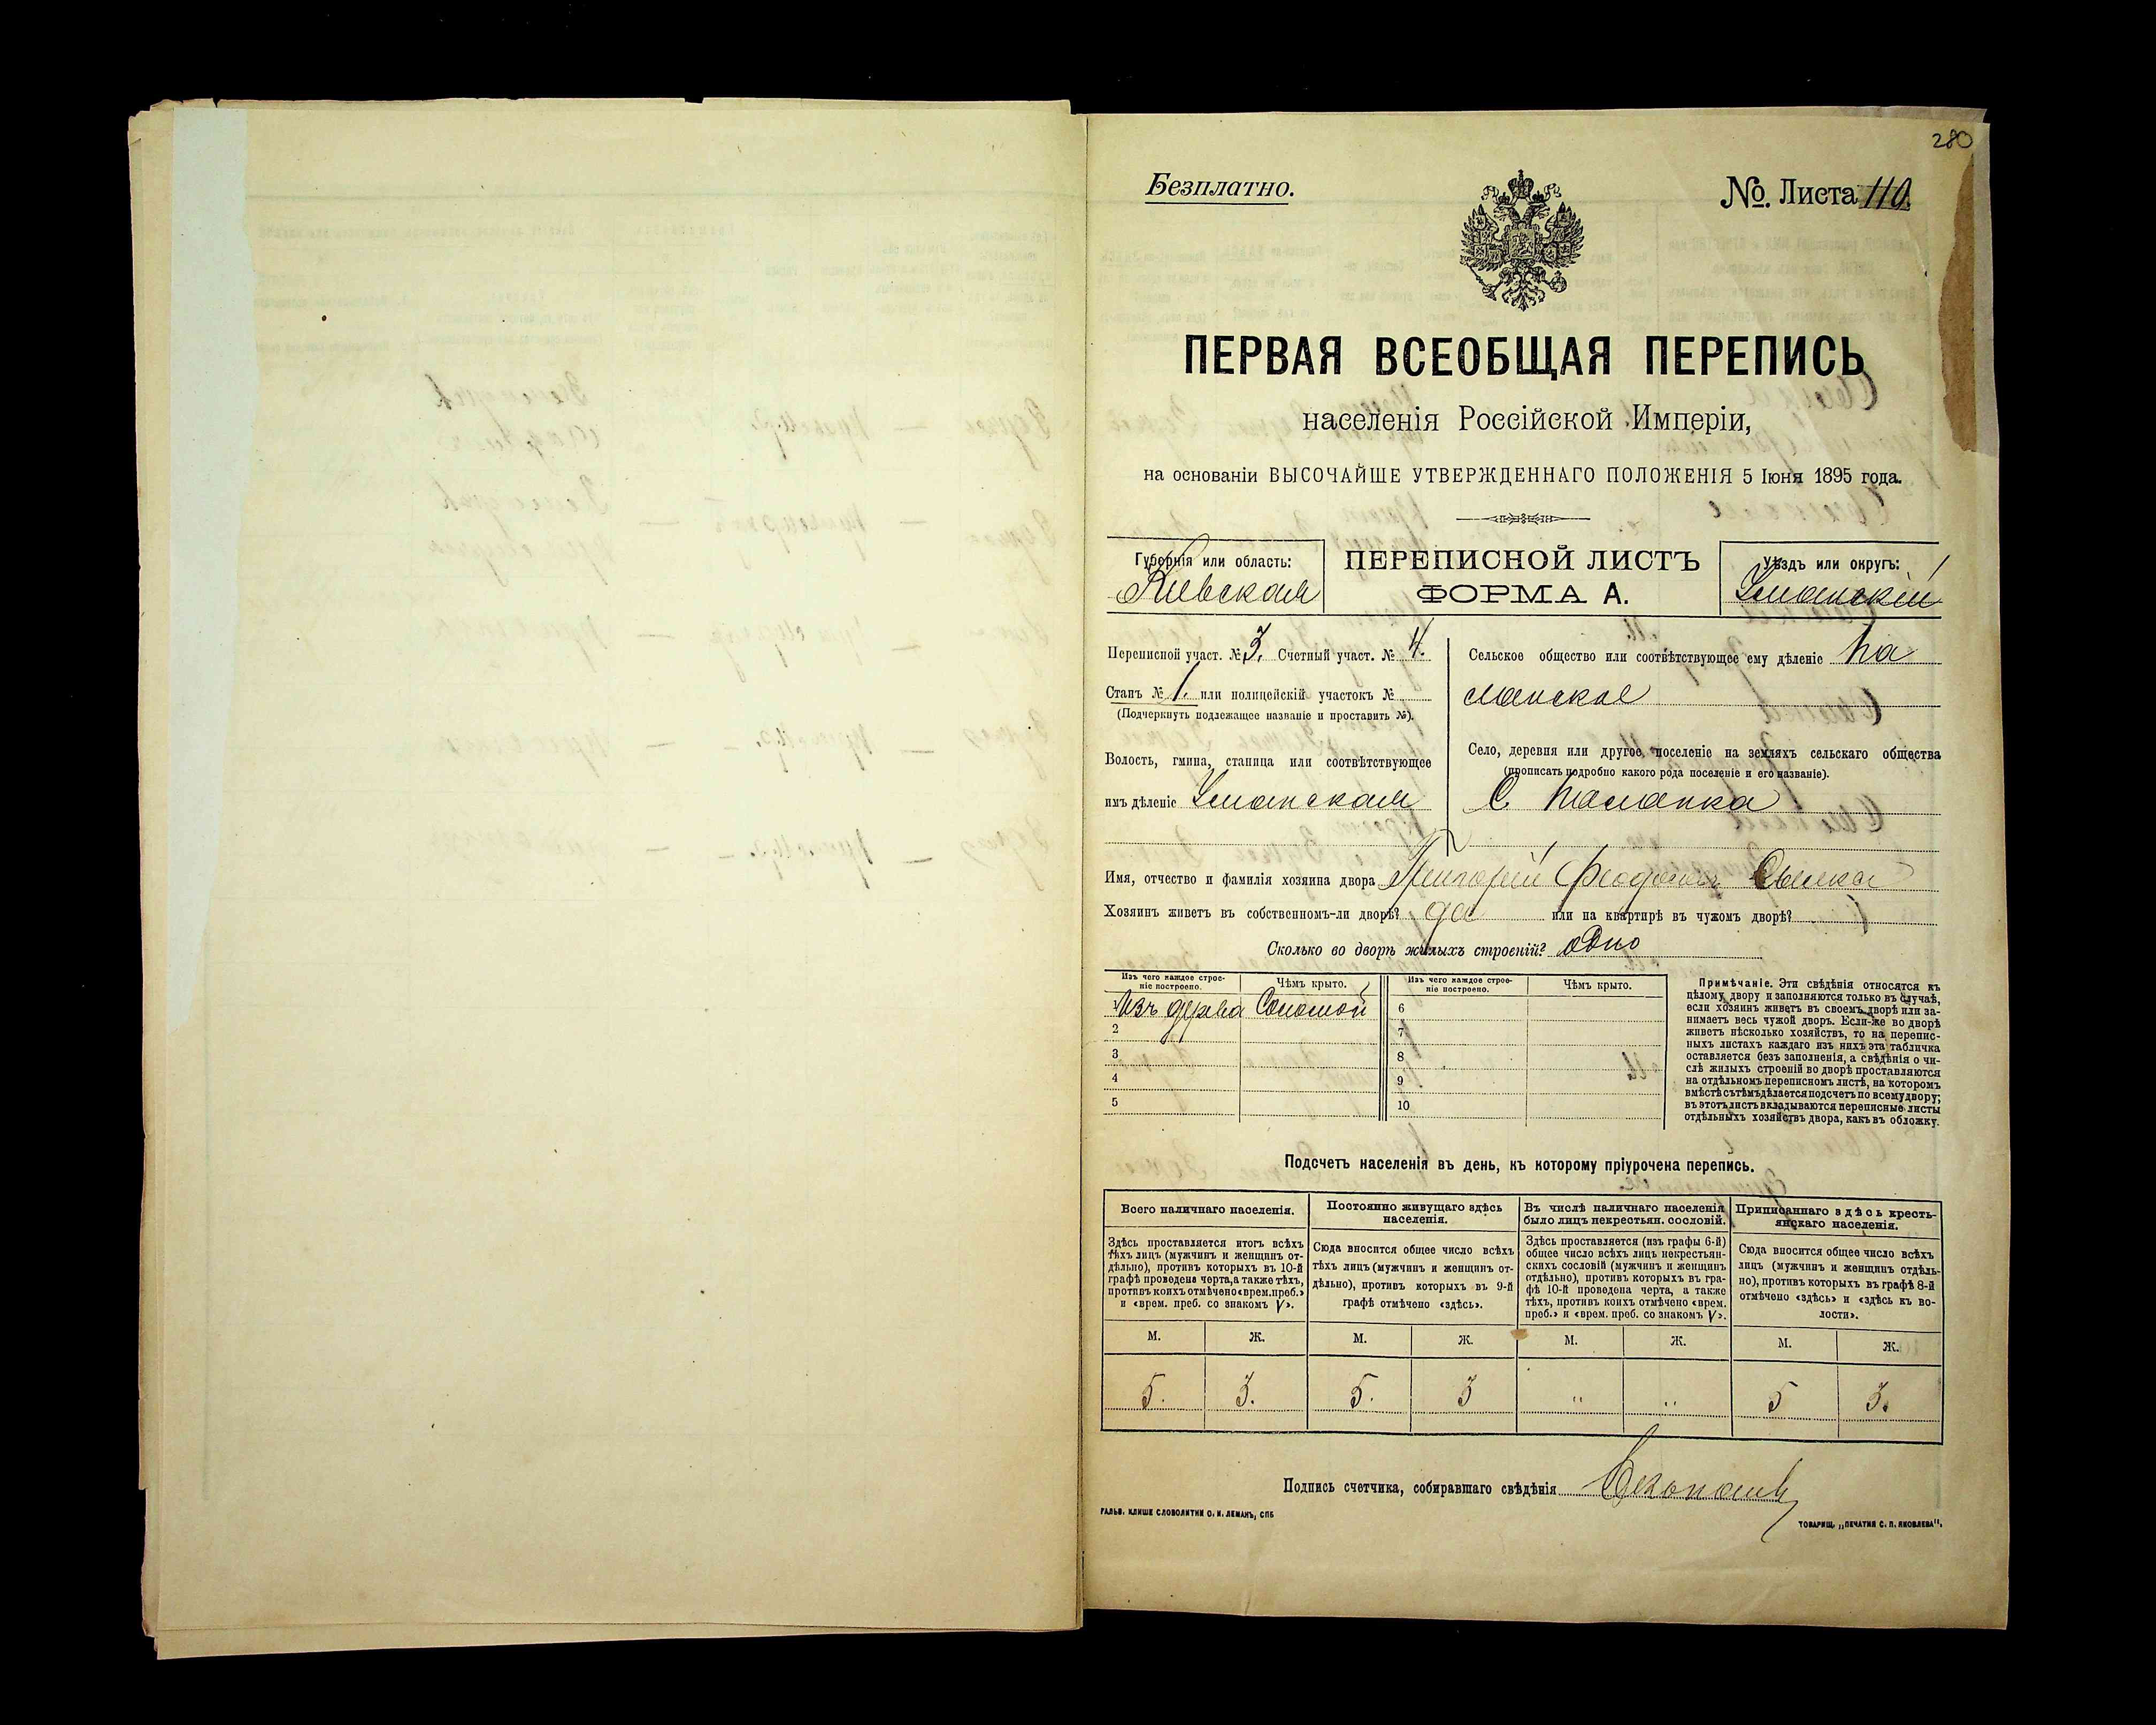 280
Безплатно.
№. Листа 110.
ПЕРВАЯ ВСЕОБЩАЯ ПЕРЕПИСЬ
населенія Россійской Имперіи,
на основаніи ВЫСОЧАЙШЕ УТВЕРЖДЕННАГО ПОЛОЖЕНІЯ 5 Іюня 1895 года.
Губернія или область:
Кіевская
ПЕРЕПИСНОЙ ЛИСТЪ
ФОРМА А.
Уѣздъ или округъ:
Уманскій
Переписной участ. № 3. Счетный участ. № 4.
Станъ № 1. или полицейскій участокъ №
(Подчеркнуть подлежащее названіе и проставить №).
Волость, гмина, станица или соотвѣтствующее
имъ дѣленіе Уманская
Сельское общество или соотвѣтствующее ему дѣленіе Па
ланское
Село, деревня или другое поселеніе на земляхъ сельскаго общества
(прописать подробно какого рода поселеніе и его названіе).
С. Паланка
Имя, отчество и фамилія хозяина двора Григорій
Хозяинъ живетъ въ собственномъ-ли дворѣ? да или на квартирѣ въ чужомъ дворѣ?
Сколько во дворѣ жилыхъ строеній? одно
Изъ чего каждое строе-
ніе построено.
Чѣмъ крыто.
Изъ чего каждое строе-
ніе построено.
Чѣмъ крыто.
1 Изъ дерева Соломой
2
3
4
5
6
7
8
9
10
Примѣчаніе. Эти свѣдѣнія относятся къ
цѣлому двору и заполняются только въ случаѣ,
если хозяинъ живетъ въ своемъ дворѣ или за-
нимаетъ весь чужой дворъ. Если-же во дворѣ
живетъ нѣсколько хозяйствъ, то на перепис-
ныхъ листахъ каждаго изъ нихъ эта табличка
оставляется безъ заполненія, а свѣдѣнія о чи-
слѣ жилыхъ строеній во дворѣ проставляются
на отдѣльномъ переписномъ листѣ, на которомъ
вмѣстѣ съ тѣмъ дѣлается подсчетъ по всему двору;
въ этотъ листъ вкладываются переписные листы
отдѣльныхъ хозяйствъ двора, какъ въ обложку.
Подсчетъ населенія въ день, къ которому пріурочена перепись.
Всего наличнаго населенія.
Здѣсь проставляется итогъ всѣхъ
тѣхъ лицъ (мужчинъ и женщинъ от-
дѣльно), противъ которыхъ въ 10-й
графѣ проведена черта, а также тѣхъ,
противъ коихъ отмѣчено «врем. преб.»
и «врем. преб. со знакомъ V».
Постоянно живущаго здѣсь
населенія.
Сюда вносится общее число всѣхъ
тѣхъ лицъ (мужчинъ и женщинъ от-
дѣльно), противъ которыхъ въ 9-й
графѣ отмѣчено «здѣсь».
Въ числѣ наличнаго населенія
было лицъ некрестьян. сословій.
Здѣсь проставляется (изъ графы 6-й)
общее число всѣхъ лицъ некрестьян-
скихъ сословій (мужчинъ и женщинъ
отдѣльно), противъ которыхъ въ гра-
фѣ 10-й проведена черта, а также
тѣхъ, противъ коихъ отмѣчено «врем.
преб.» и «врем. преб. со знакомъ V».
Приписаннаго здѣсь кресть-
янскаго населенія.
Сюда вносится общее число всѣхъ
лицъ (мужчинъ и женщинъ отдѣль-
но), противъ которыхъ въ графѣ 8-й
отмѣчено «здѣсь» и «здѣсь къ во-
лости».
М. Ж. М. Ж. М. Ж. М. Ж.
5. 3. 5. 3 " " 5 3.
Подпись счетчика, собиравшаго свѣдѣнія
ГАЛЬВ. КЛИШЕ СЛОВОЛИТНИ О. И. ЛЕМАНЪ, СПБ
ТОВАРИЩ. „ПЕЧАТНЯ С. П. ЯКОВЛЕВА".